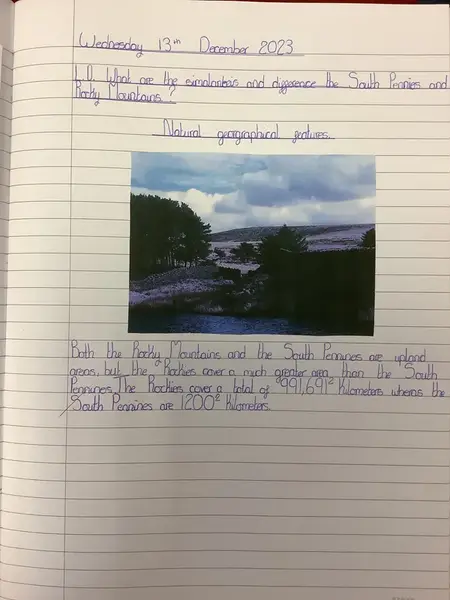 Wednesday 13th December 2023
L.O. What are the simalarities and difference the South Pennies and
Rocky Mountains?
Natural geographical features.
Both the Rocky Mountains and the South Pennines are upland
areas, but the Rockies cover a much greater area than the South
Pennines. The Rockies cover a total of 991,691² Kilometers wheras the
South Pennines are 1200² Kilometers.